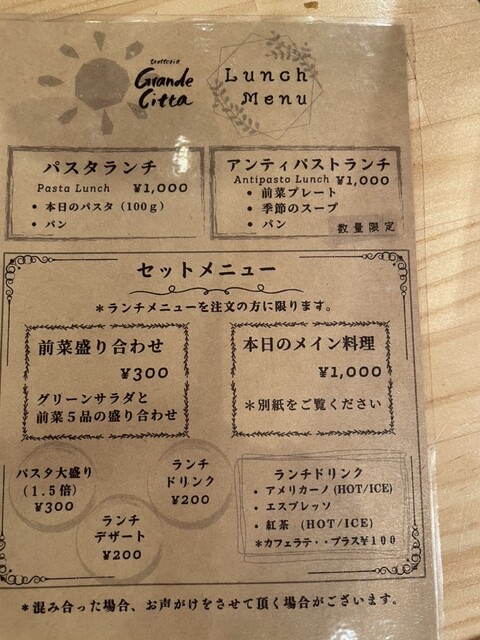 trattoria
Grande
Citta
Lunch
Menu
パスタランチ
Pasta Lunch ¥1,000
• 本日のパスタ（100g）
• パン
アンティパストランチ
Antipasto Lunch ¥1,000
• 前菜プレート
• 季節のスープ
• パン
数量限定
セットメニュー
＊ランチメニューを注文の方に限ります。
前菜盛り合わせ
¥300
グリーンサラダと
前菜５品の盛り合わせ
本日のメイン料理
¥1,000
＊別紙をご覧ください
パスタ大盛り
（1.5倍）
¥300
ランチ
ドリンク
¥200
ランチ
デザート
¥200
ランチドリンク
• アメリカーノ (HOT/ICE)
• エスプレッソ
• 紅茶 (HOT/ICE)
＊カフェラテ・・プラス¥100
＊混み合った場合、お声がけをさせて頂く場合がございます。